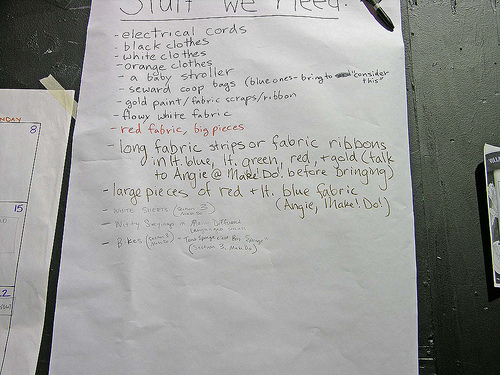 Stuff We Need:
- electrical cords
- black clothes
- white clothes
- orange clothes
- a baby stroller
- seward coop bags (blue ones - bring to "consider this"
- gold paint/fabric scraps/ribbon
- flowy white fabric
- red fabric, big pieces
- long fabric strips or fabric ribbons
in lt. blue, lt. green, red, + gold (talk
to Angie @ Make! Do! before bringing)
- large pieces of red + lt. blue fabric
(Angie, Make! Do!)
- WHITE SHEETS
- Witty Sayings in Many Different
Languages
- Bikes
(Section 3, Make Do)
NDAY
8
15
2